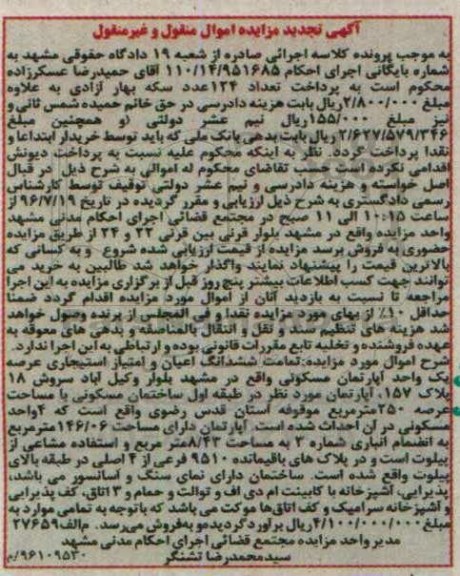 آگهی تجدید مزایده اموال منقول و غیرمنقول
به موجب پرونده کلاسه اجرائی صادره از شعبه ۱۹ دادگاه حقوقی مشهد به
شماره بایگانی اجرای احکام ۱۱۰/۱۴/۹۵۱۶۸۵ آقای حمیدرضا عسکرزاده
محکوم است به پرداخت تعداد ۱۲۴عدد سکه بهار آزادی به علاوه
مبلغ ۲/۸۰۰/۰۰۰ریال بابت هزینه دادرسی در حق خانم حمیده شمس ثانی و
نیز مبلغ ۱۵۵/۰۰۰ریال نیم عشر دولتی (و همچنین مبلغ
۲/۶۲۷/۵۷۹/۳۴۶ ریال بابت بدهی بانک ملی که باید توسط خریدار ابتداعا و
نقدا پرداخت گردد. نظر به اینکه محکوم علیه نسبت به پرداخت دیونش
اقدامی نکرده است حسب تقاضای محکوم له اموالی به شرح ذیل در قبال
اصل خواسته و هزینه دادرسی و نیم عشر دولتی توقیف توسط کارشناس
رسمی دادگستری به شرح ذیل ارزیابی و مقرر گردیده در تاریخ ۹۶/۷/۱۹ از
ساعت ۱۰:۱۵ الی ۱۱ صبح در مجتمع قضائی اجرای احکام مدنی مشهد
واحد مزایده واقع در مشهد بلوار قرنی بین قرنی ۲۲ و ۲۴ از طریق مزایده
حضوری به فروش برسد مزایده از قیمت ارزیابی شده شروع و به کسانی که
بالاترین قیمت را پیشنهاد نمایند واگذار خواهد شد طالبین به خرید می
توانند جهت کسب اطلاعات بیشتر پنج روز قبل از برگزاری مزایده به این اجرا
مراجعه تا نسبت به بازدید آنان از اموال مورد مزایده اقدام گردد ضمنا
حداقل ۱۰٪ از بهای مورد مزایده نقدا و فی المجلس از برنده وصول خواهد
شد هزینه های تنظیم سند و نقل و انتقال بالمناصفه و بدهی های معوقه به
عهده فروشنده و تخلیه تابع مقررات قانونی بوده و ارتباطی به این اجرا ندارد.
شرح اموال مورد مزایده:تمامت ششدانگ اعیان و امتیاز استیجاری عرصه
یک واحد آپارتمان مسکونی واقع در مشهد بلوار وکیل آباد سروش ۱۸
پلاک ۱۵۷، آپارتمان مورد نظر در طبقه اول ساختمان مسکونی با مساحت
عرصه ۲۵۰مترمربع موقوفه آستان قدس رضوی واقع است که ۴واحد
مسکونی در آن احداث شده است. آپارتمان دارای مساحت ۱۴۶/۰۶مترمربع
به انضمام انباری شماره ۳ به مساحت ۸/۴۳متر مربع و استفاده مشاعی از
پیلوت است و در پلاک های باقیمانده ۹۵۱۰ فرعی از ۴ اصلی در طبقه بالای
پیلوت واقع شده است. ساختمان دارای نمای سنگ و آسانسور می باشد،
پذیرایی، آشپزخانه با کابینت ام دی اف و توالت و حمام و ۳ اتاق، کف پذیرایی
و آشپزخانه سرامیک و کف اتاق‌ها موکت می باشد که باتوجه به تمامی موارد به
مبلغ۴/۱۰۰/۰۰۰/۰۰۰ریال برآورد گردیدمو به‌فروش می‌رسد. م‌الف۲۷۶۵۹
مدیر واحد مزایده مجتمع قضائی اجرای احکام مدنی مشهد
سیدمحمدرضا تشنگر
۹۶۱۰۹۵۳۰/م